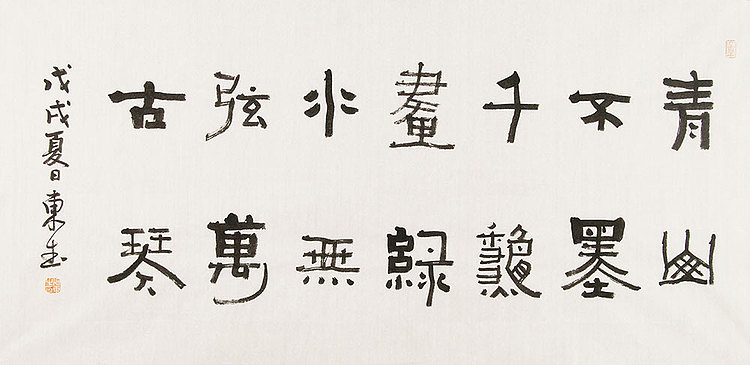 青山
不墨
千龝
畫綠
水無
弦萬
古琴
戊戌夏日東